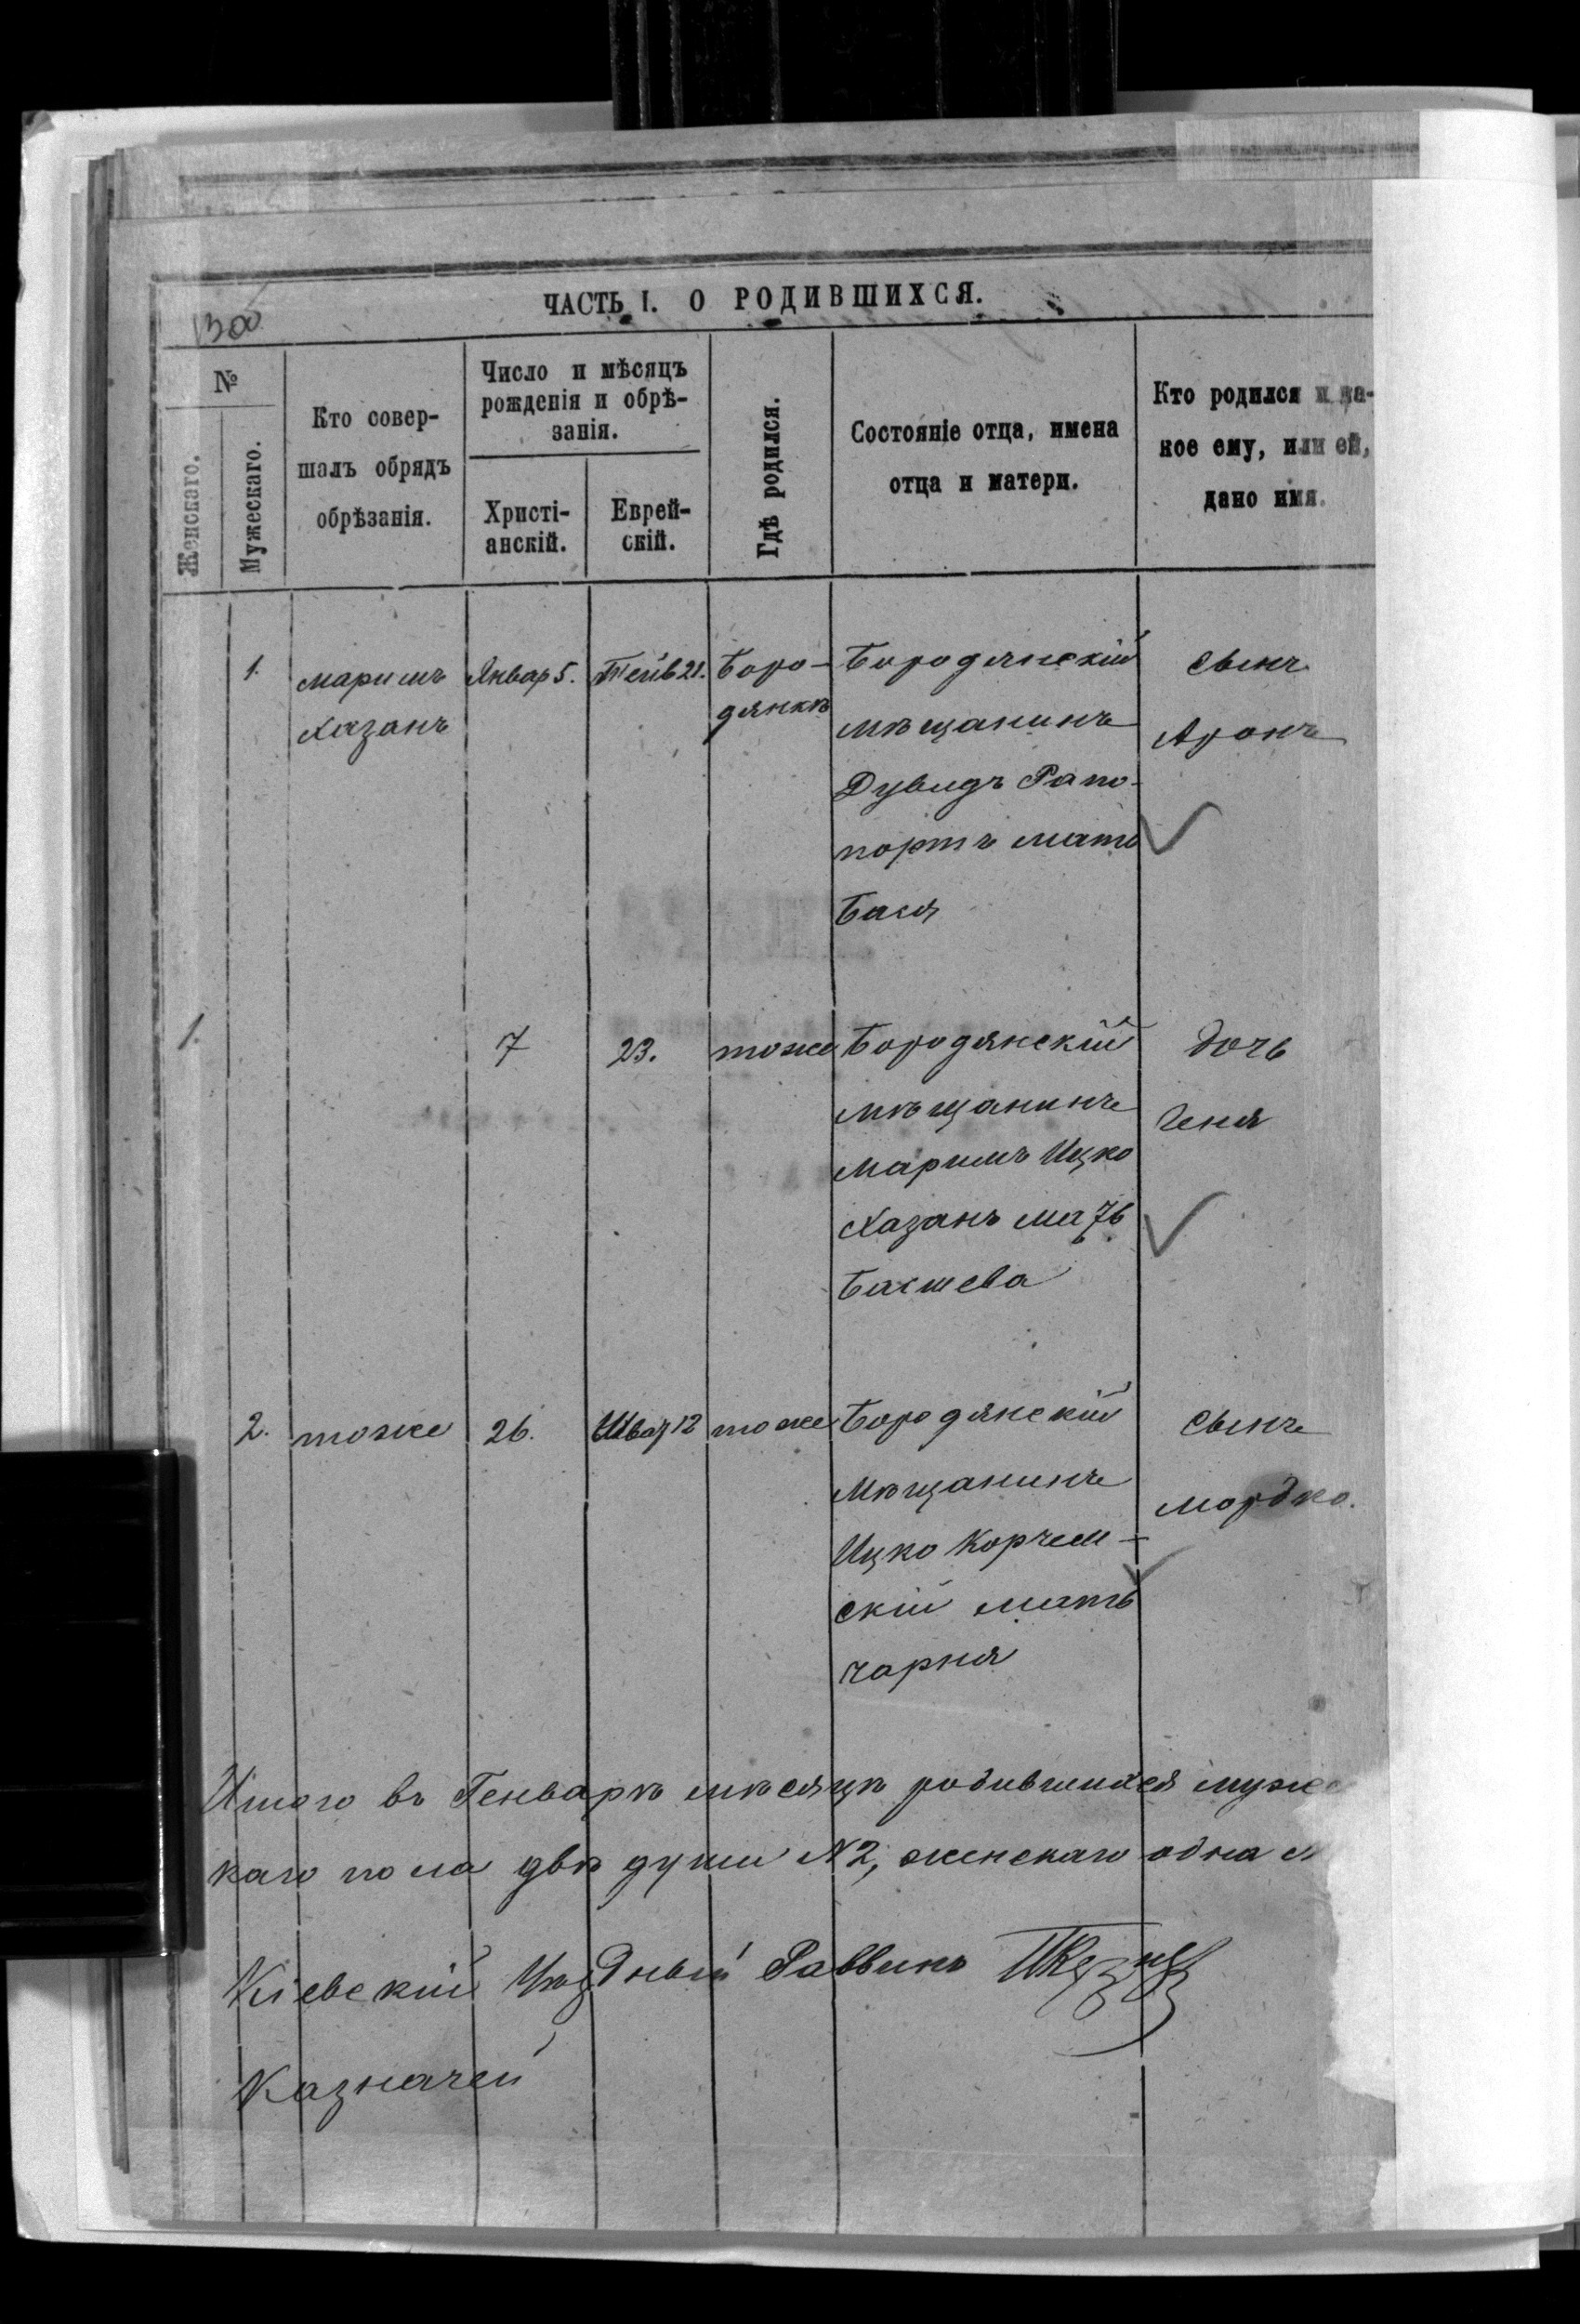 1300
ЧАСТЬ I. О РОДИВШИХСЯ.
№
Женскаго.
Мужескаго.
Кто совер-
шалъ обрядъ
обрѣзанія.
Число и мѣсяцъ
рожденія и обрѣ-
занія.
Христі-
анскій.
Еврей-
скій.
Гдѣ родился.
Состояніе отца, имена
отца и матери.
Кто родился и ка-
кое ему, или ей,
дано имя.
1.
Маримъ
Хазанъ
Январ 5.
Тейв 21.
Боро-
дянкѣ
Бородянскій
мѣщанинъ
Дувидъ Рапо-
портъ мать
Бася
сынъ
Аронъ
1.
7
23.
тоже
Бородянскій
мѣщанинъ
Маримъ Ицко
Хазанъ мать
Басшева
дочь
Геня
2.
тоже
26.
Шват 12
тоже
Бородянскій
Мѣщанинъ
Ицко Корчем-
скій мать
Чарня
сынъ
Мордко.
Итого въ Генварѣ мѣсяцѣ родившихся мужес
каго пола двѣ души №2, женскаго одна
Кіевскій Уѣздный Раввинъ
Казначей